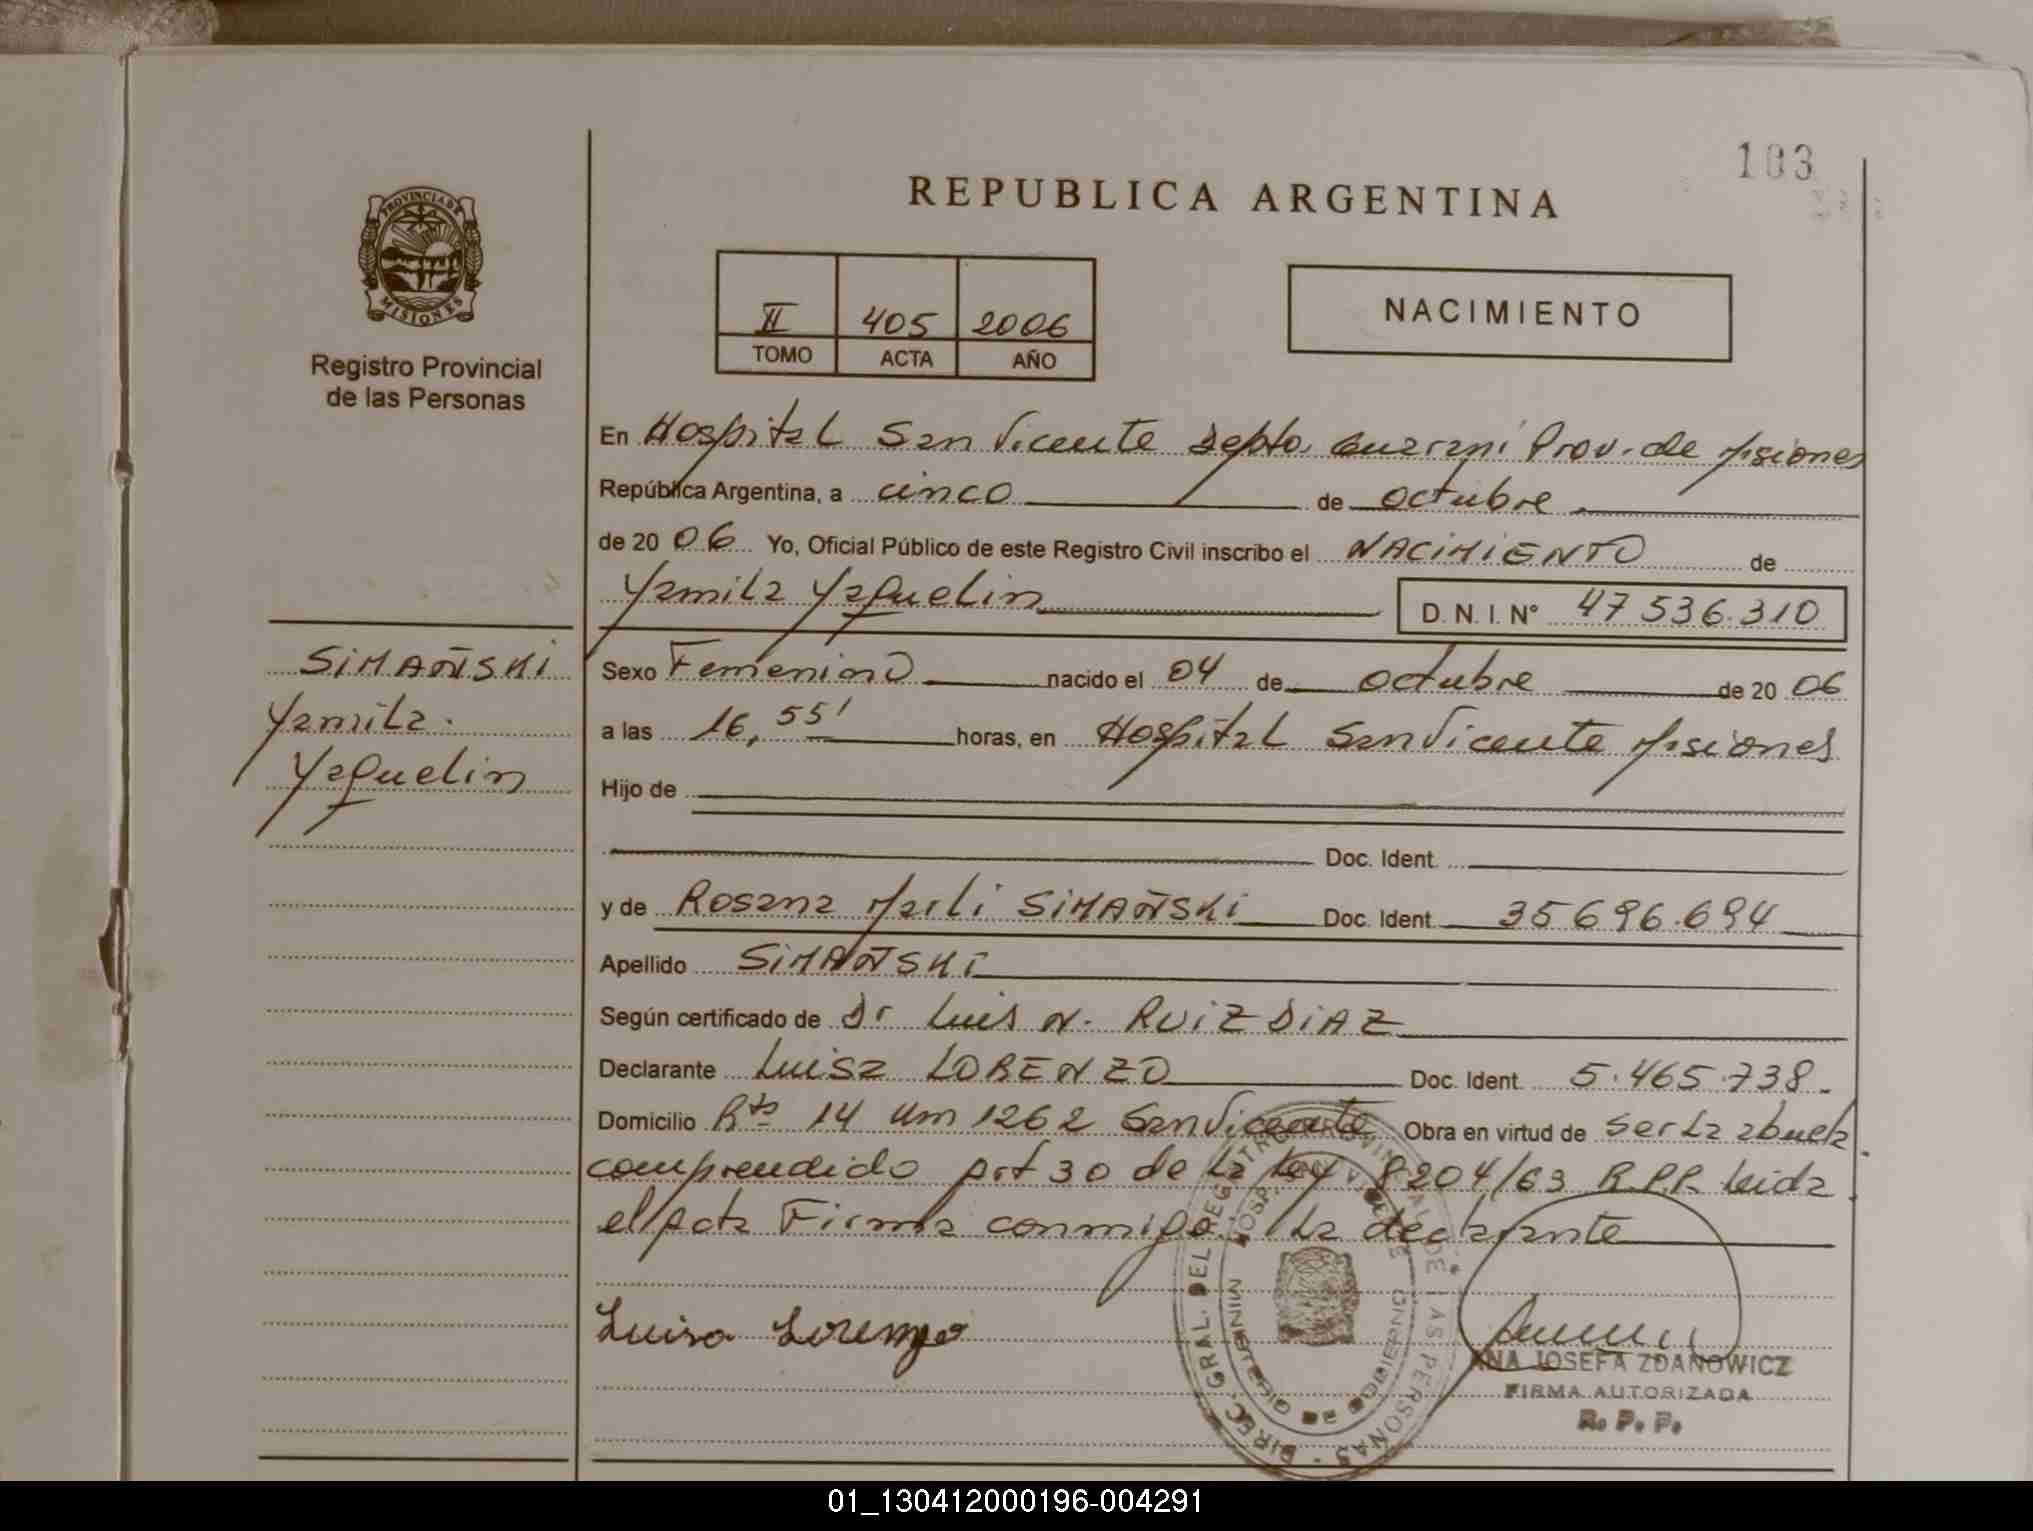 103
PROVINCIA DE
MISIONES
Registro Provincial
de las Personas
REPUBLICA ARGENTINA
II 405 2006
TOMO ACTA AÑO
NACIMIENTO
En Hospital San Vicente Depto. Guarani Prov. de Misiones
República Argentina, a cinco de octubre
de 20 06 Yo, Oficial Público de este Registro Civil inscribo el NACIMIENTO de
Yamila Yaquelin D. N. I. Nº 47 536.310
SIMAÑSKI
Yamila
Yaquelin
Sexo Femenino nacido el 04 de octubre de 20 06
a las 16,55' horas, en Hospital San Vicente Misiones
Hijo de
Doc. Ident.
y de Rosana Marli SIMAÑSKI Doc. Ident. 35696.694
Apellido SIMAÑSKI
Según certificado de Dr Luis N. RUIZ DIAZ
Declarante Luisa LORENZO Doc. Ident. 5.465.738.
Domicilio Rta 14 Km 1262 San Vicente Obra en virtud de ser la abuela
comprendido Art 30 de la ley 8204/63 R.P.P. Leida
el Acta Firma conmigo: la declarante
Luisa Lorenzo
DIREC. GRAL. DEL REGISTRO PROVINCIAL DE LAS PERSONAS
MINISTERIO DE GOBIERNO
ANA JOSEFA ZDANOWICZ
FIRMA AUTORIZADA
R. P. P.
01_130412000196-004291